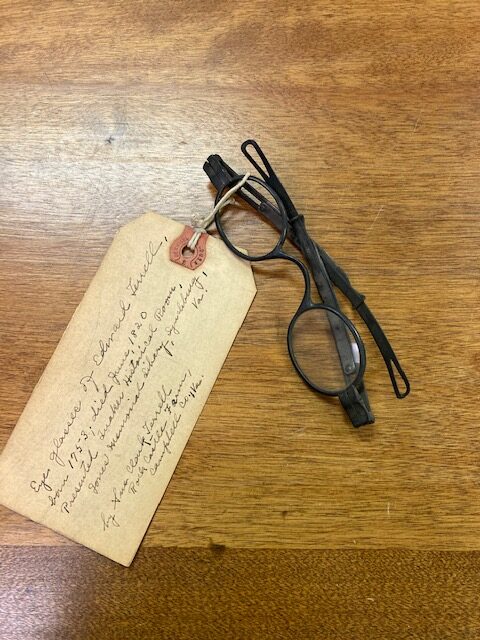 Eye glasses of Edward Terrell,
born 1753, died June, 1820
Presented Quaker Historical Room,
Jones Memorial Library, Lynchburg,
Va.
by Clark Terrell
Rock Castle Farm,
Campbell Co., Va.